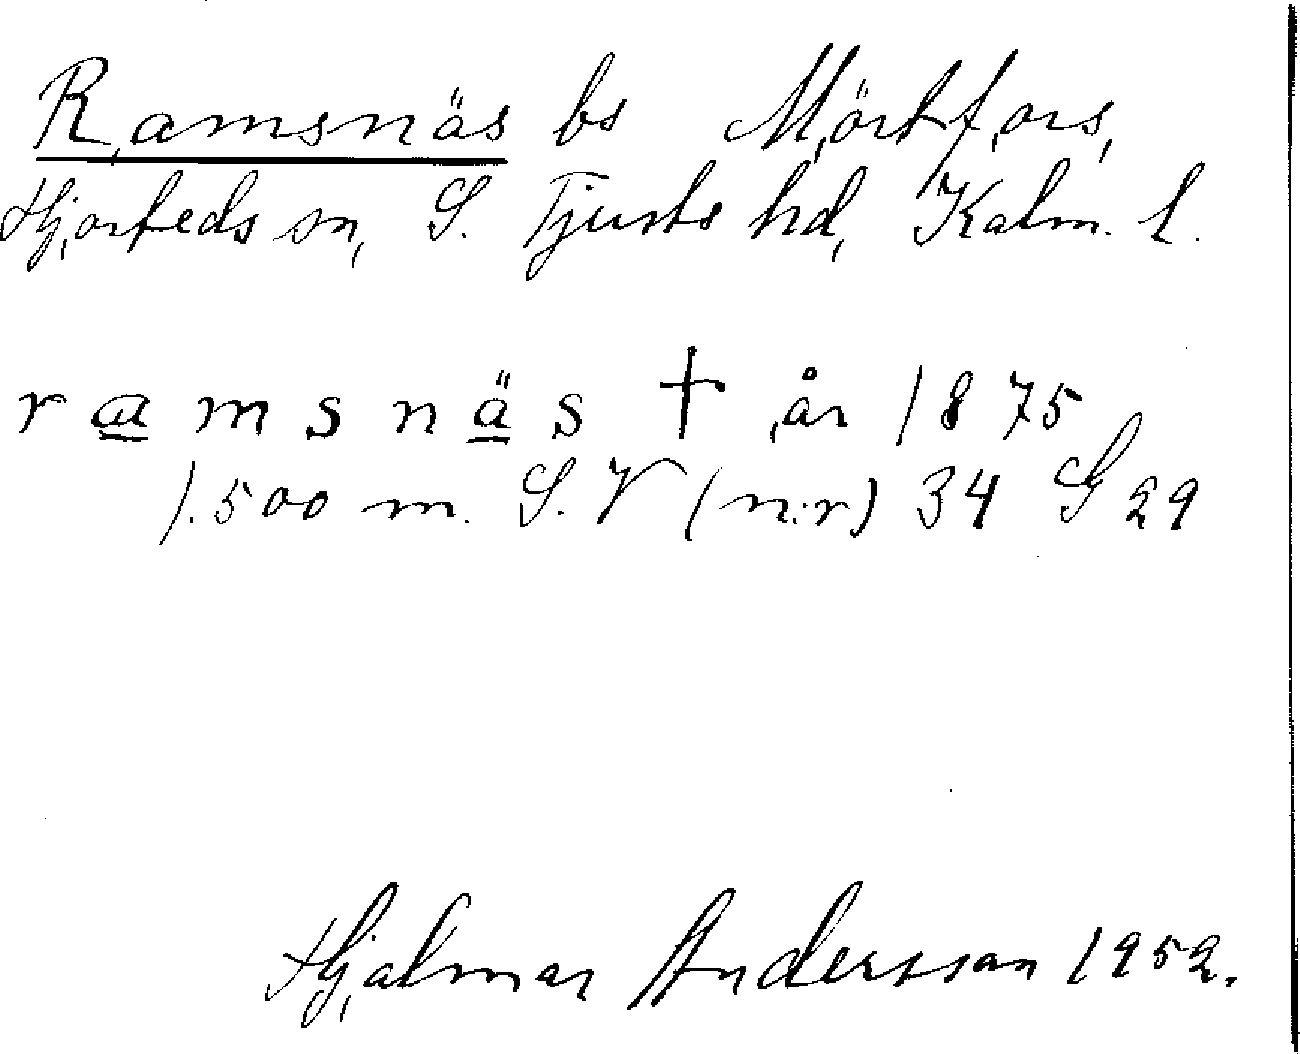 Ramsnäs bs Mörtfors,
Hjorteds sn, S. Tjusts hd, Kalm. l.
ramsnäs † år 1875
1.500 m. S.V (n:r) 34 G 29
Hjalmar Andersson 1952.